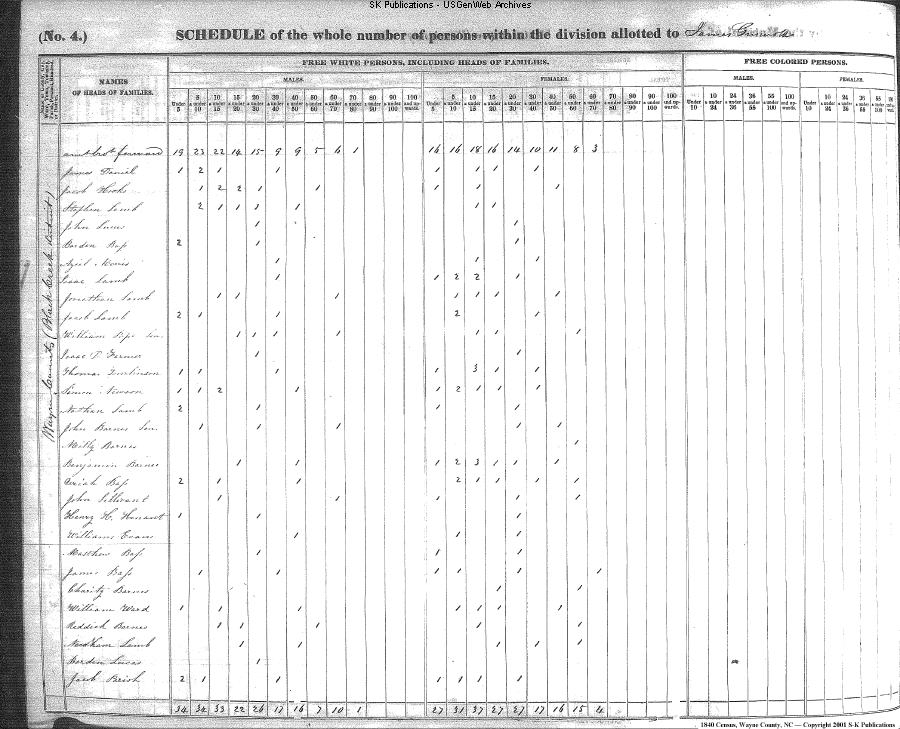 SK Publications - USGenWeb Archives
(No. 4.) SCHEDULE of the whole number of persons within the division allotted to James
FREE WHITE PERSONS, INCLUDING HEADS OF FAMILIES. FREE COLORED PERSONS.
NAMES OF HEADS OF FAMILIES. MALES. FEMALES. MALES. FEMALES.
Under 5 5 & under 10 10 & under 15 15 & under 20 20 & under 30 30 & under 40 40 & under 50 50 & under 60 60 & under 70 70 & under 80 80 & under 90 90 & under 100 100 and upwards. Under 5 5 & under 10 10 & under 15 15 & under 20 20 & under 30 30 & under 40 40 & under 50 50 & under 60 60 & under 70 70 & under 80 80 & under 90 90 & under 100 100 and upwards. Under 10 10 & under 24 24 & under 36 36 & under 55 55 & under 100 100 and upwards. Under 10 10 & under 24 24 & under 36 36 & under 55 55 & under 100
Wayne County (Black Creek District)
amt brot forward 19 23 22 14 15 9 9 5 6 1 16 16 18 16 14 10 11 8 3
James Daniel 1 2 1 1 1 1 1 1
Jacob Hooks 1 2 2 1 1 1 1 1
Stephen Lamb 2 1 1 3 1 1 1
John Lucas 1 1
Barden Bass 2 1 1
1 1 1
Isaac Lamb 1 1 2 2 1
Jonathan Lamb 1 1 1 1 1 1 1
Jacob Lamb 2 1 1 2 1
William Sen. 1 1 1 1 1 1 1
Isaac Farmer 1 1
Thomas Tomlinson 1 1 1 1 3 1 1
Simon Newsom 1 1 2 1 1 2 1 1 1
Nathan Lamb 2 1 1 1
John Barnes Sen. 1 1 1 1 1
Milly Barnes 1
Benjamin Barnes 1 1 1 2 3 1 1 1
Uriah Bass 2 1 1 2 1 1 1 1
John Sillivant 1 1 1 1 1
Henry H. Hinnant 1 1 1
Williams Evans 1 1 1
Matthew Bass 1 1 1
James Bass 1 1 1 1 1 1
Charity Barnes 1 1
William Ward 1 1 1 1 1 1 1
Reddick Barnes 1 1 1 1 1
Needham Lamb 1 1 1 1 1
Barden Lucas 1
Jacob 2 1 1 1 1 1 1
34 34 33 22 26 17 16 7 10 1 27 31 37 27 27 17 16 15 4
1840 Census, Wayne County, NC — Copyright 2001 S-K Publications